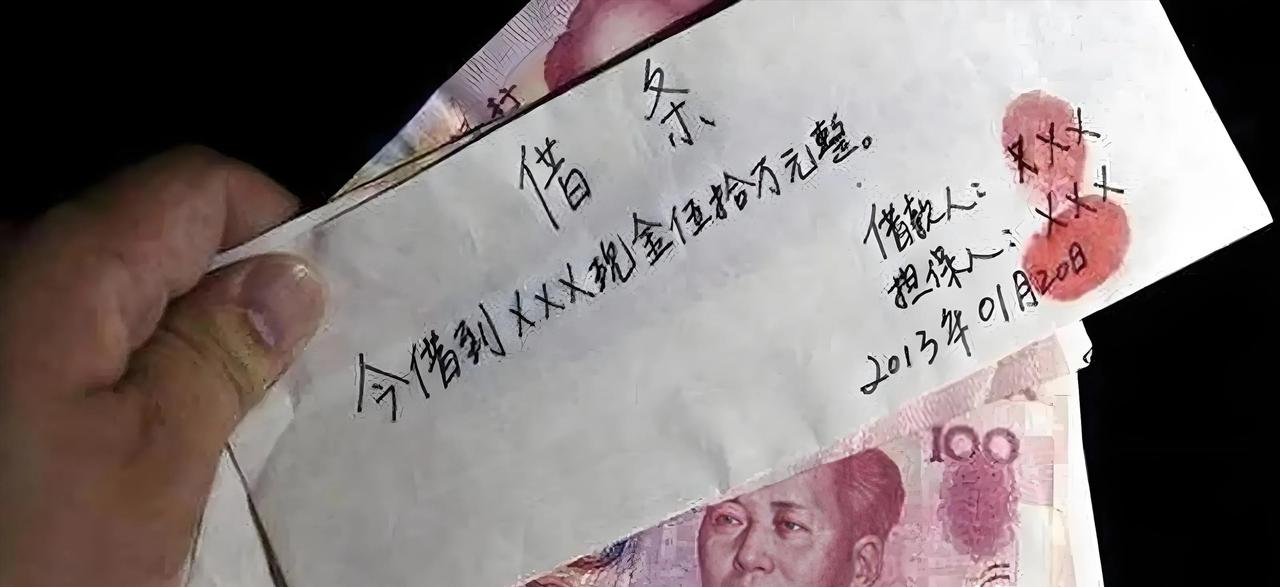 借条
今借到XXX现金伍拾万元整。
借款人：XXX
担保人：XXX
2013年01月20日
行
100